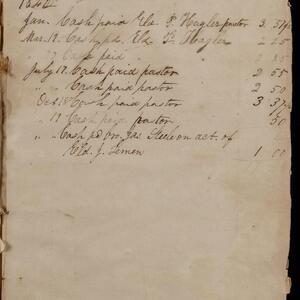 Jan. Cash paid Eld. P. Hagler pastor 3 57½
Mar. 12. Cash pd. Eld. P. Hagler 2 25
" Cash paid 2 25
July 17. Cash paid pastor 2 55
" Cash paid pastor 2 50
Oct. 18 Cash paid pastor 3 37½
" 17 Cash paid pastor 50
" Cash pd Bro. Jas. Steele on act. of
Eld. J. Lemen 1 00